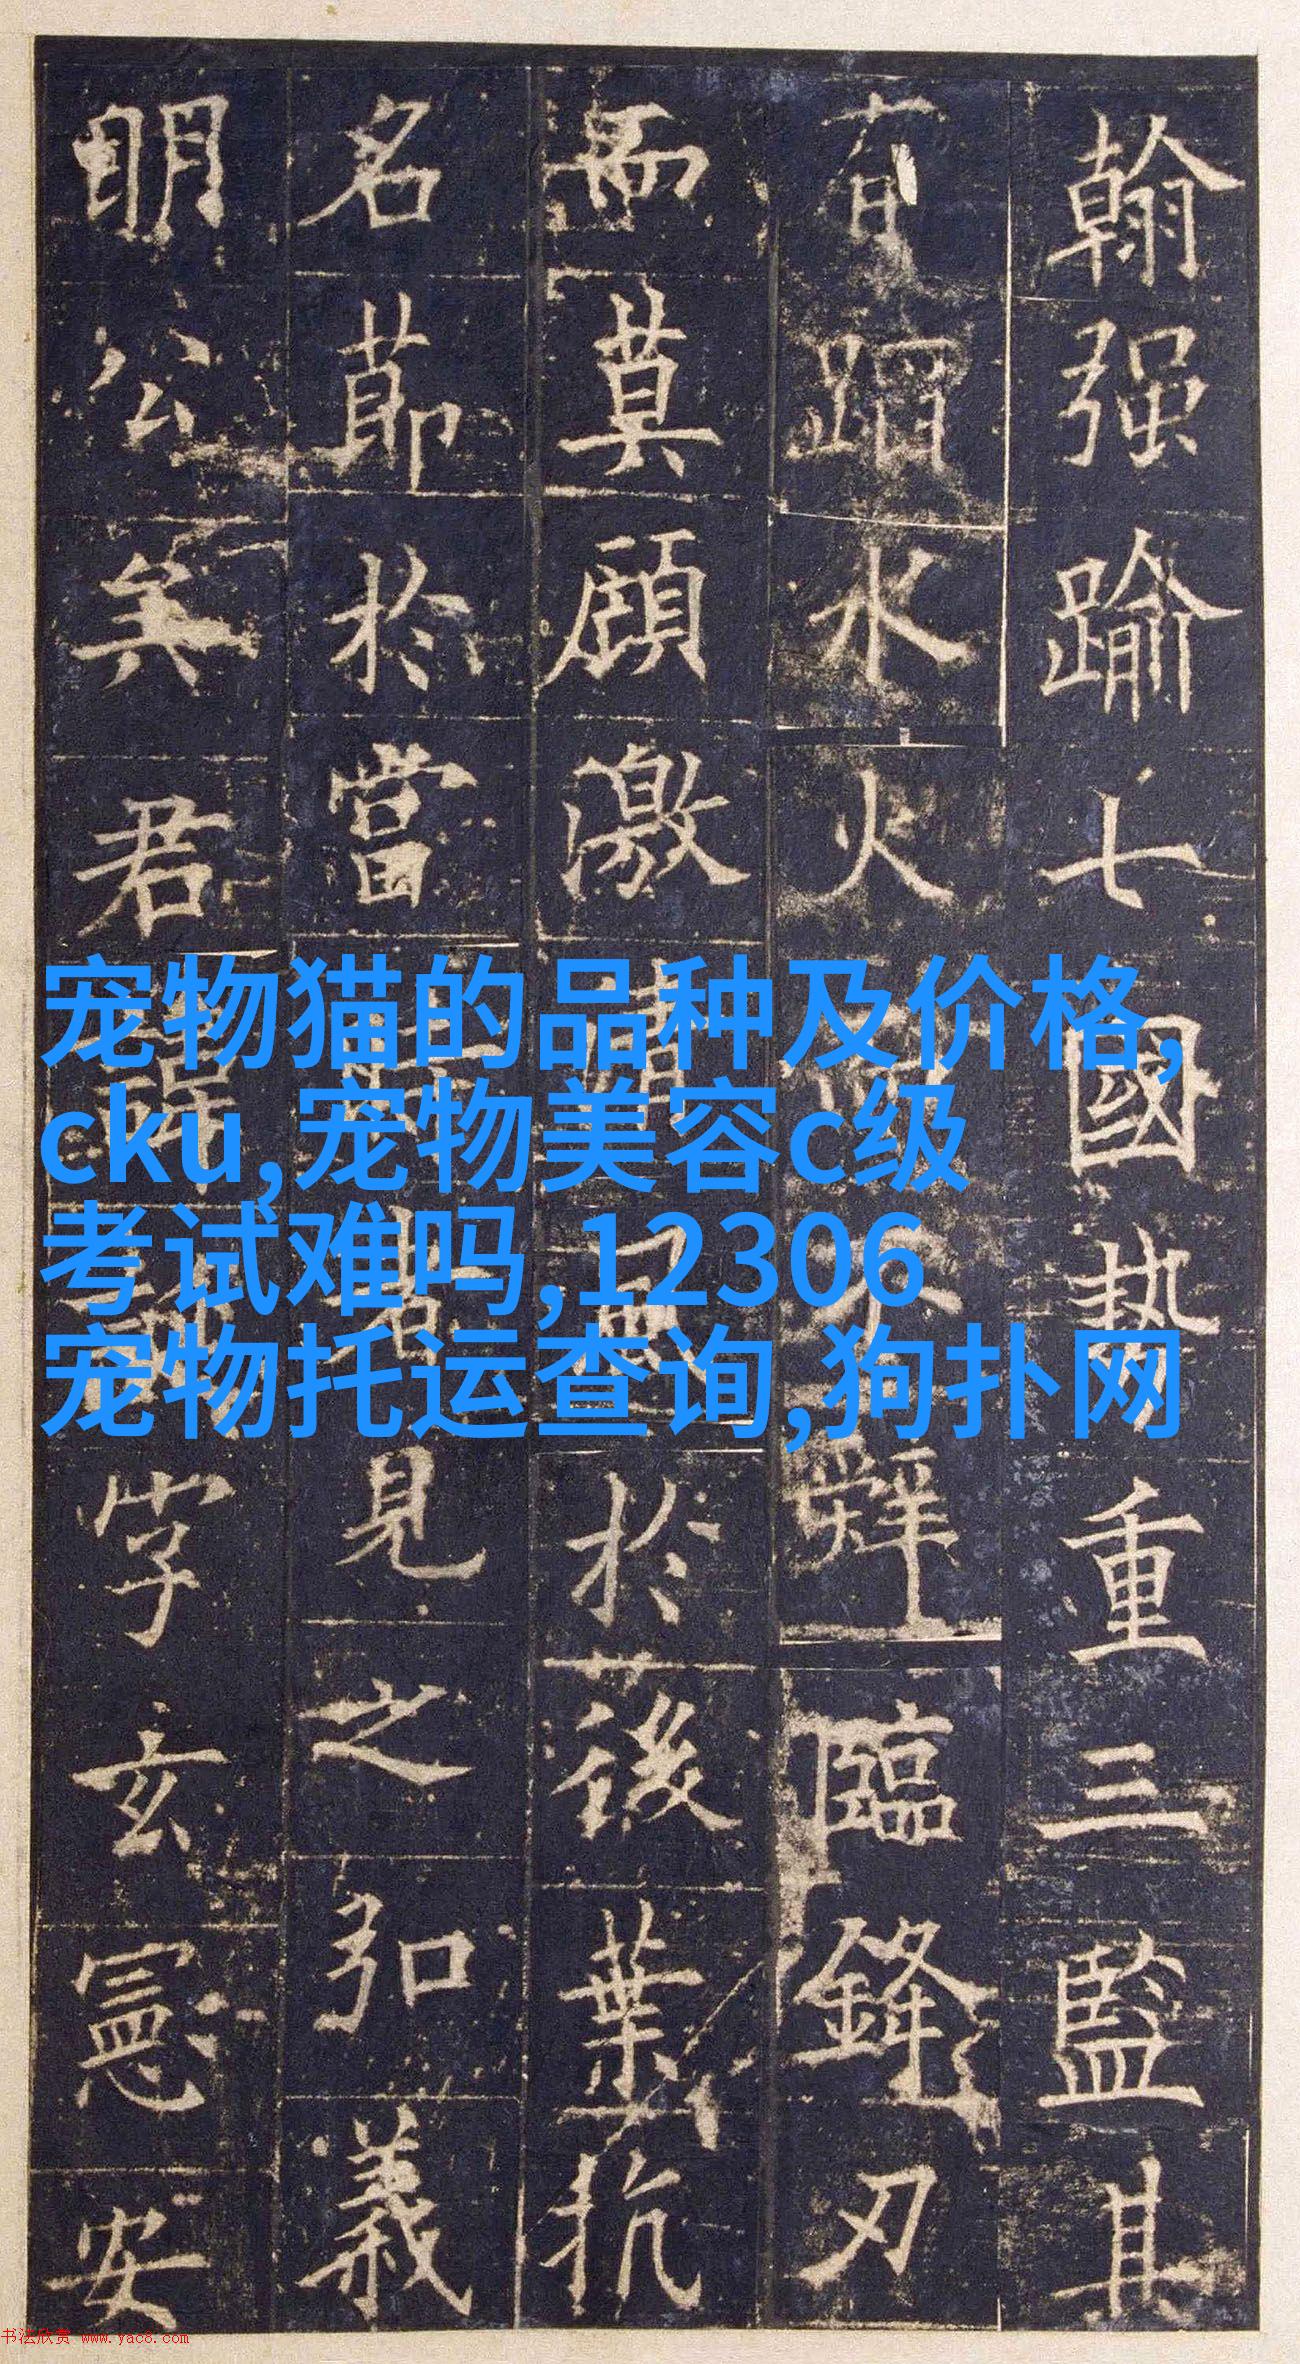 翰强踰七國勢重三監其
有蹈水火而不辭臨鋒刃
而莫顧激清風於後葉抗
名莭於當時者見之弘義
明公矣君諱誕字玄憲安
宠物猫的品种及价格,
cku,宠物美容c级
考试难吗,12306
宠物托运查询,狗扑网
书法欣赏 www.yac8.com